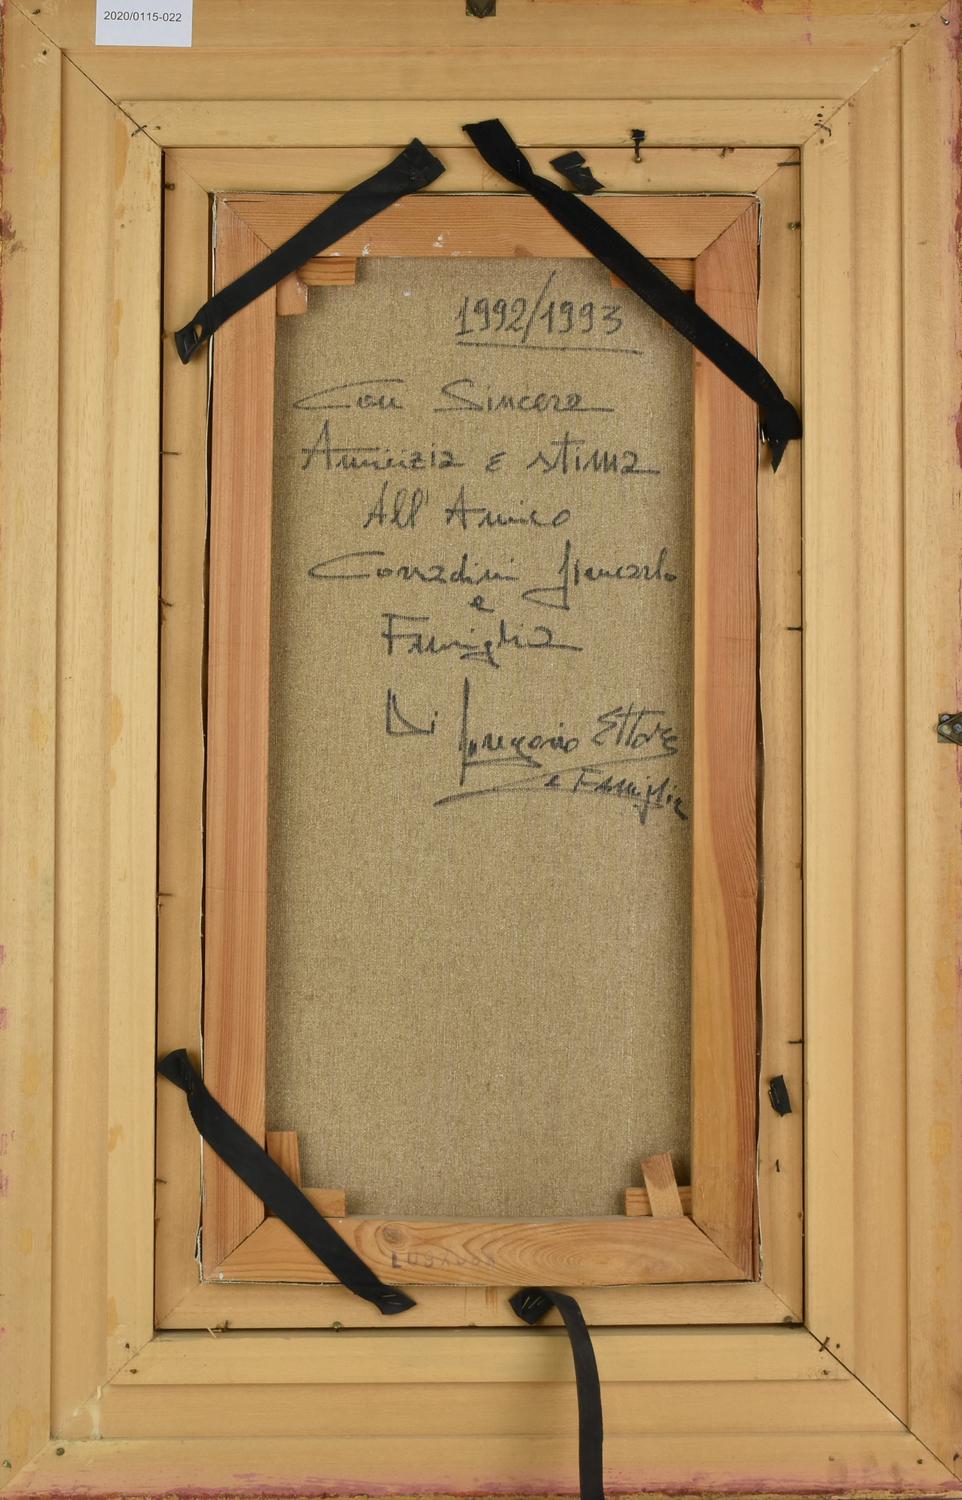 2020/0115-022
1992/1993
Con Sincera
Amicizia e stima
All' Amico
Corradini Giancarlo
e
Famiglia
Di Gregorio Ettore
e Famiglia